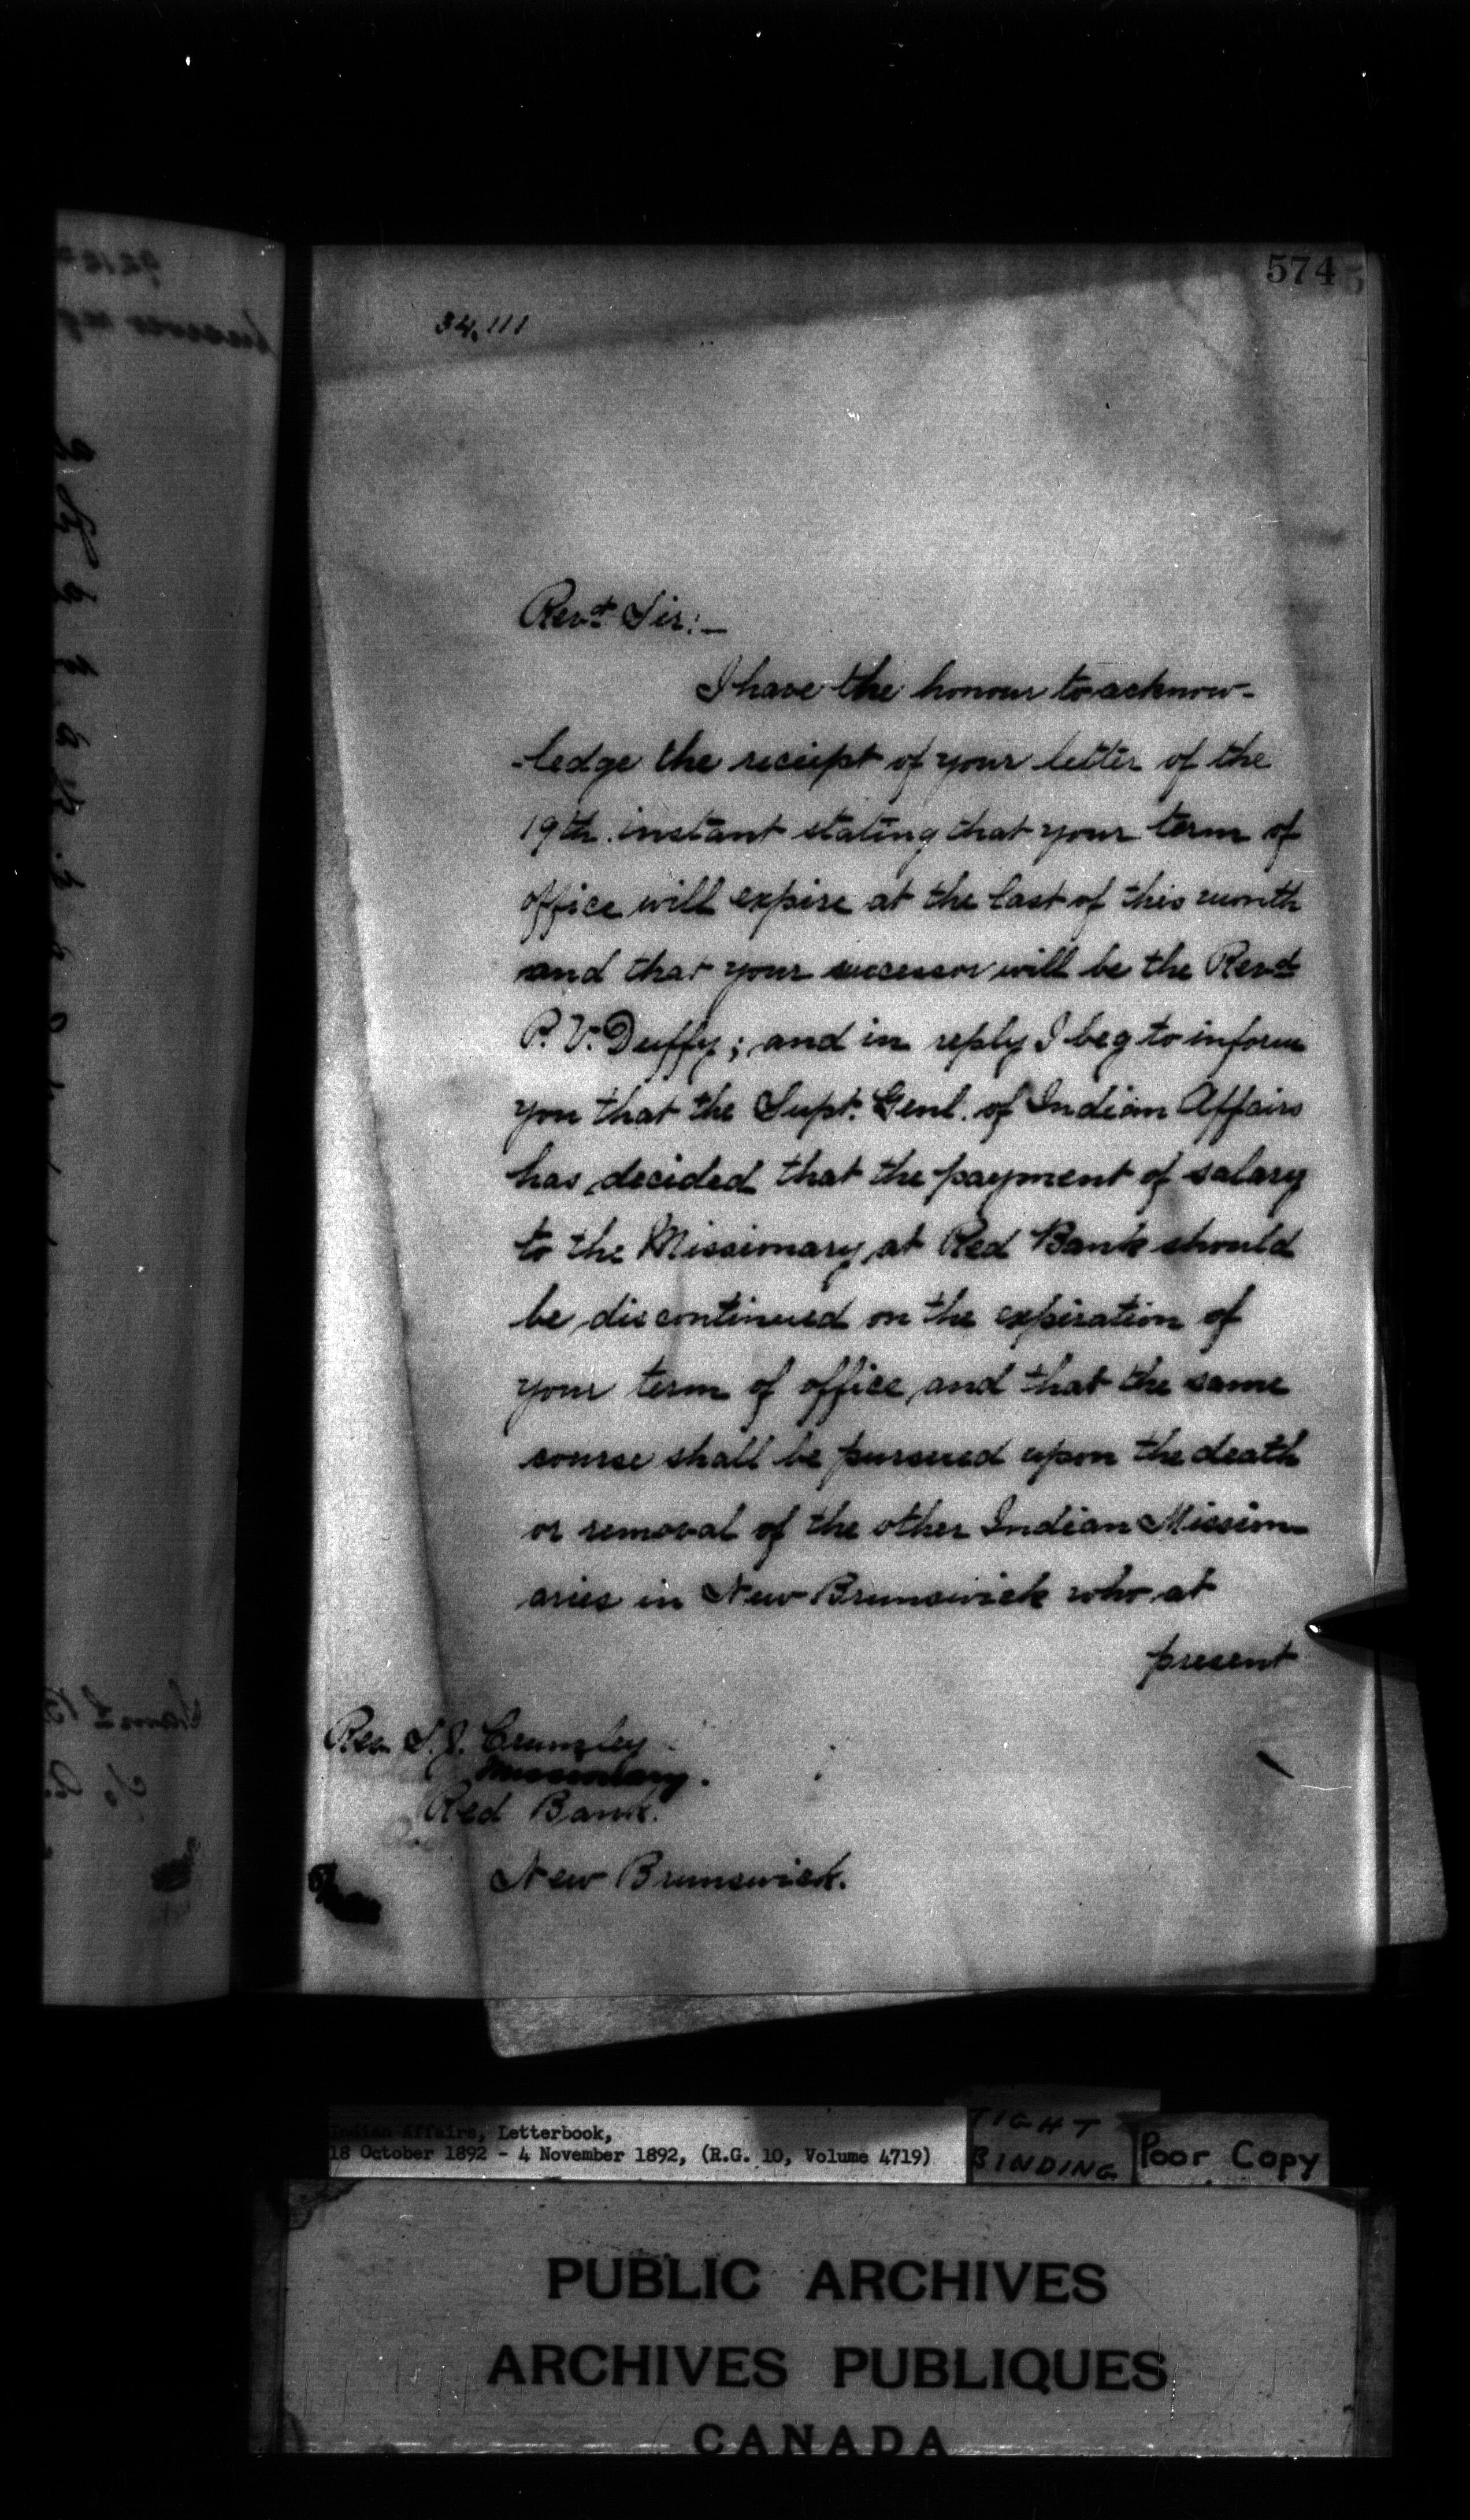 574
34,111
Revd. Sir:—
I have the honour to acknow-
-ledge the receipt of your letter of the
19th. instant stating that your term of
office will expire at the last of this month
and that your successor will be the Revd.
P. V. Duffy; and in reply I beg to inform
you that the Supt. Genl. of Indian Affairs
has decided that the payment of salary
to the Missionary at Red Bank should
be discontinued on the expiration of
your term of office and that the same
course shall be pursued upon the death
or removal of the other Indian Mission-
aries in New Brunswick who at
present
Rev. S. J. Crumley
Missionary.
Red Bank.
New Brunswick.
Indian Affairs, Letterbook,
18 October 1892 - 4 November 1892, (R.G. 10, Volume 4719)
TIGHT
BINDING
Poor Copy
PUBLIC ARCHIVES
ARCHIVES PUBLIQUES
CANADA